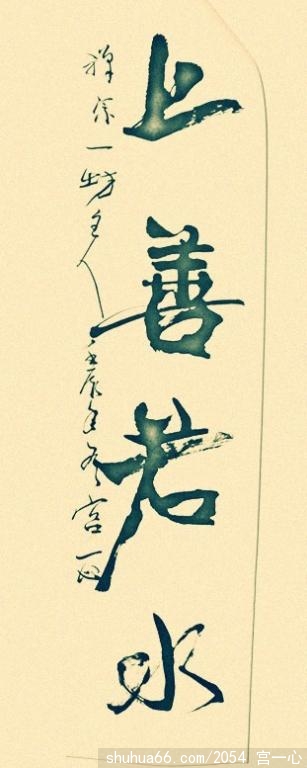 上善若水
禅余一坊主人壬辰年冬宫一心
shuhua66.com/2054 宫一心